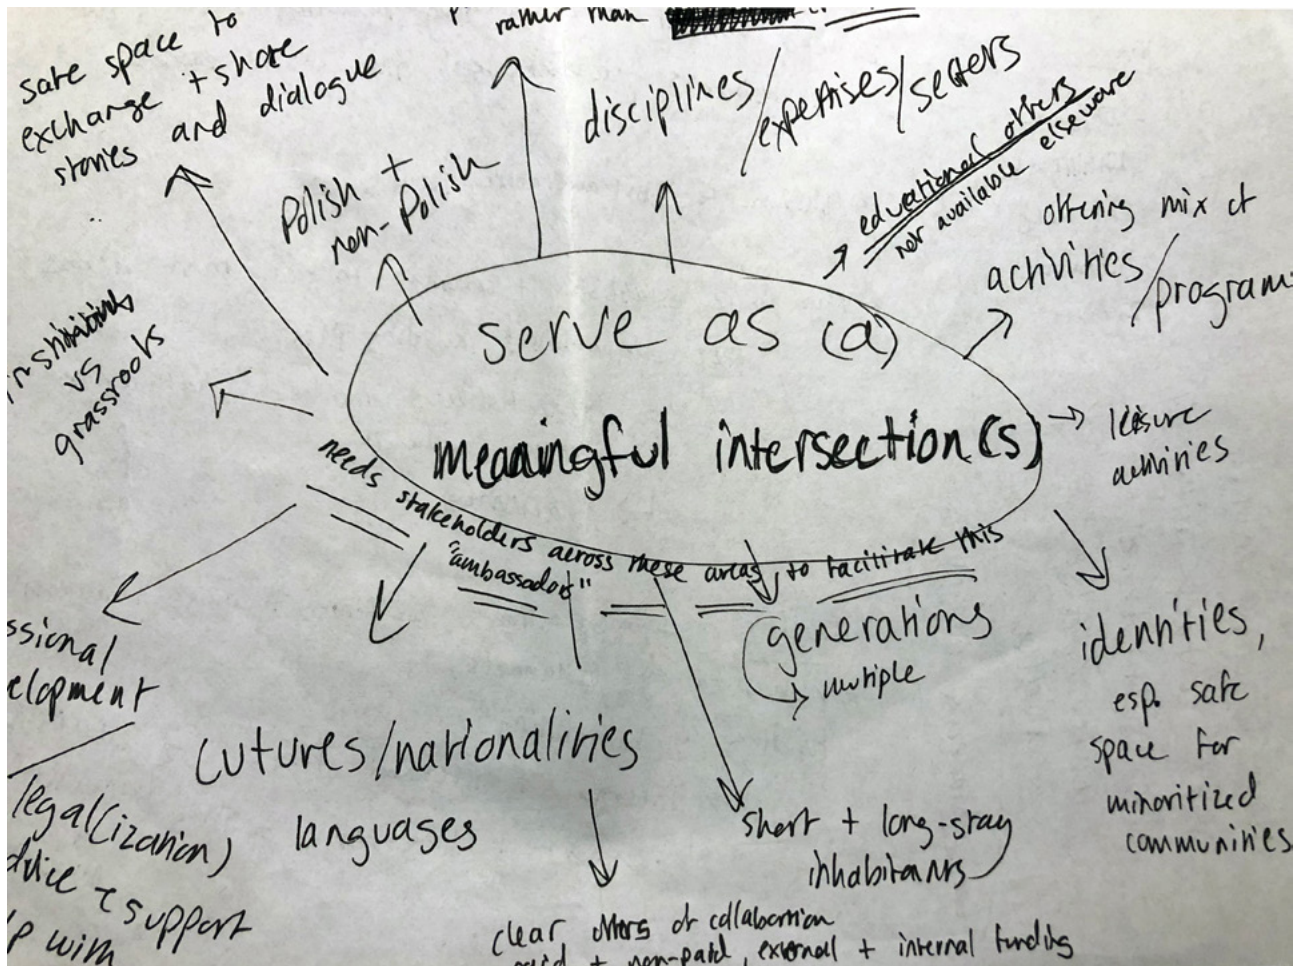 safe space to
exchange + share
stories and dialogue
rather than
Polish +
non-Polish
disciplines/expertises/setters
educational offers
not available elseware
offering mix of
activities/program
institutions
vs
grassroots
serve as (a)
meaningful intersection(s)
leisure
activities
needs stakeholders across these areas to facilitate this
"ambassadors"
generations
multiple
identities,
esp. safe
space for
minoritized
communities
ssional
elopment
cutures/nationalities
languages
legal(ization)
support
P with
short + long-stay
inhabitants
clear offers of collaboration
+ non-paid, external + internal funding